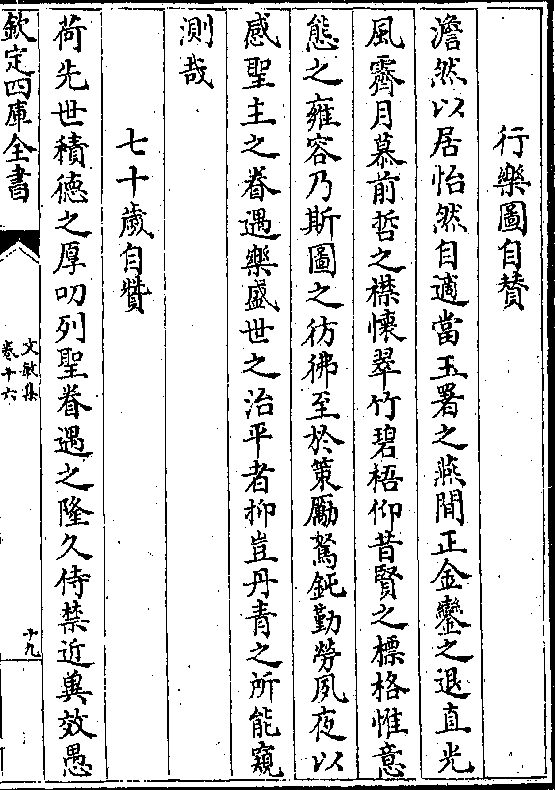 行樂圖自賛
澹然以居怡然自適當玉署之燕間正金鑾之退直光
風霽月慕前哲之襟懷翠竹碧梧仰昔賢之標格惟意
態之雍容乃斯圖之彷彿至於策勵駑鈍勤勞夙夜以
感聖主之眷遇樂盛世之治平者抑豈丹青之所能窺
測哉
七十歲自贊
荷先世積德之厚叨列聖眷遇之隆久侍禁近兾效愚
欽定四庫全書
文敏集
卷十六
十九